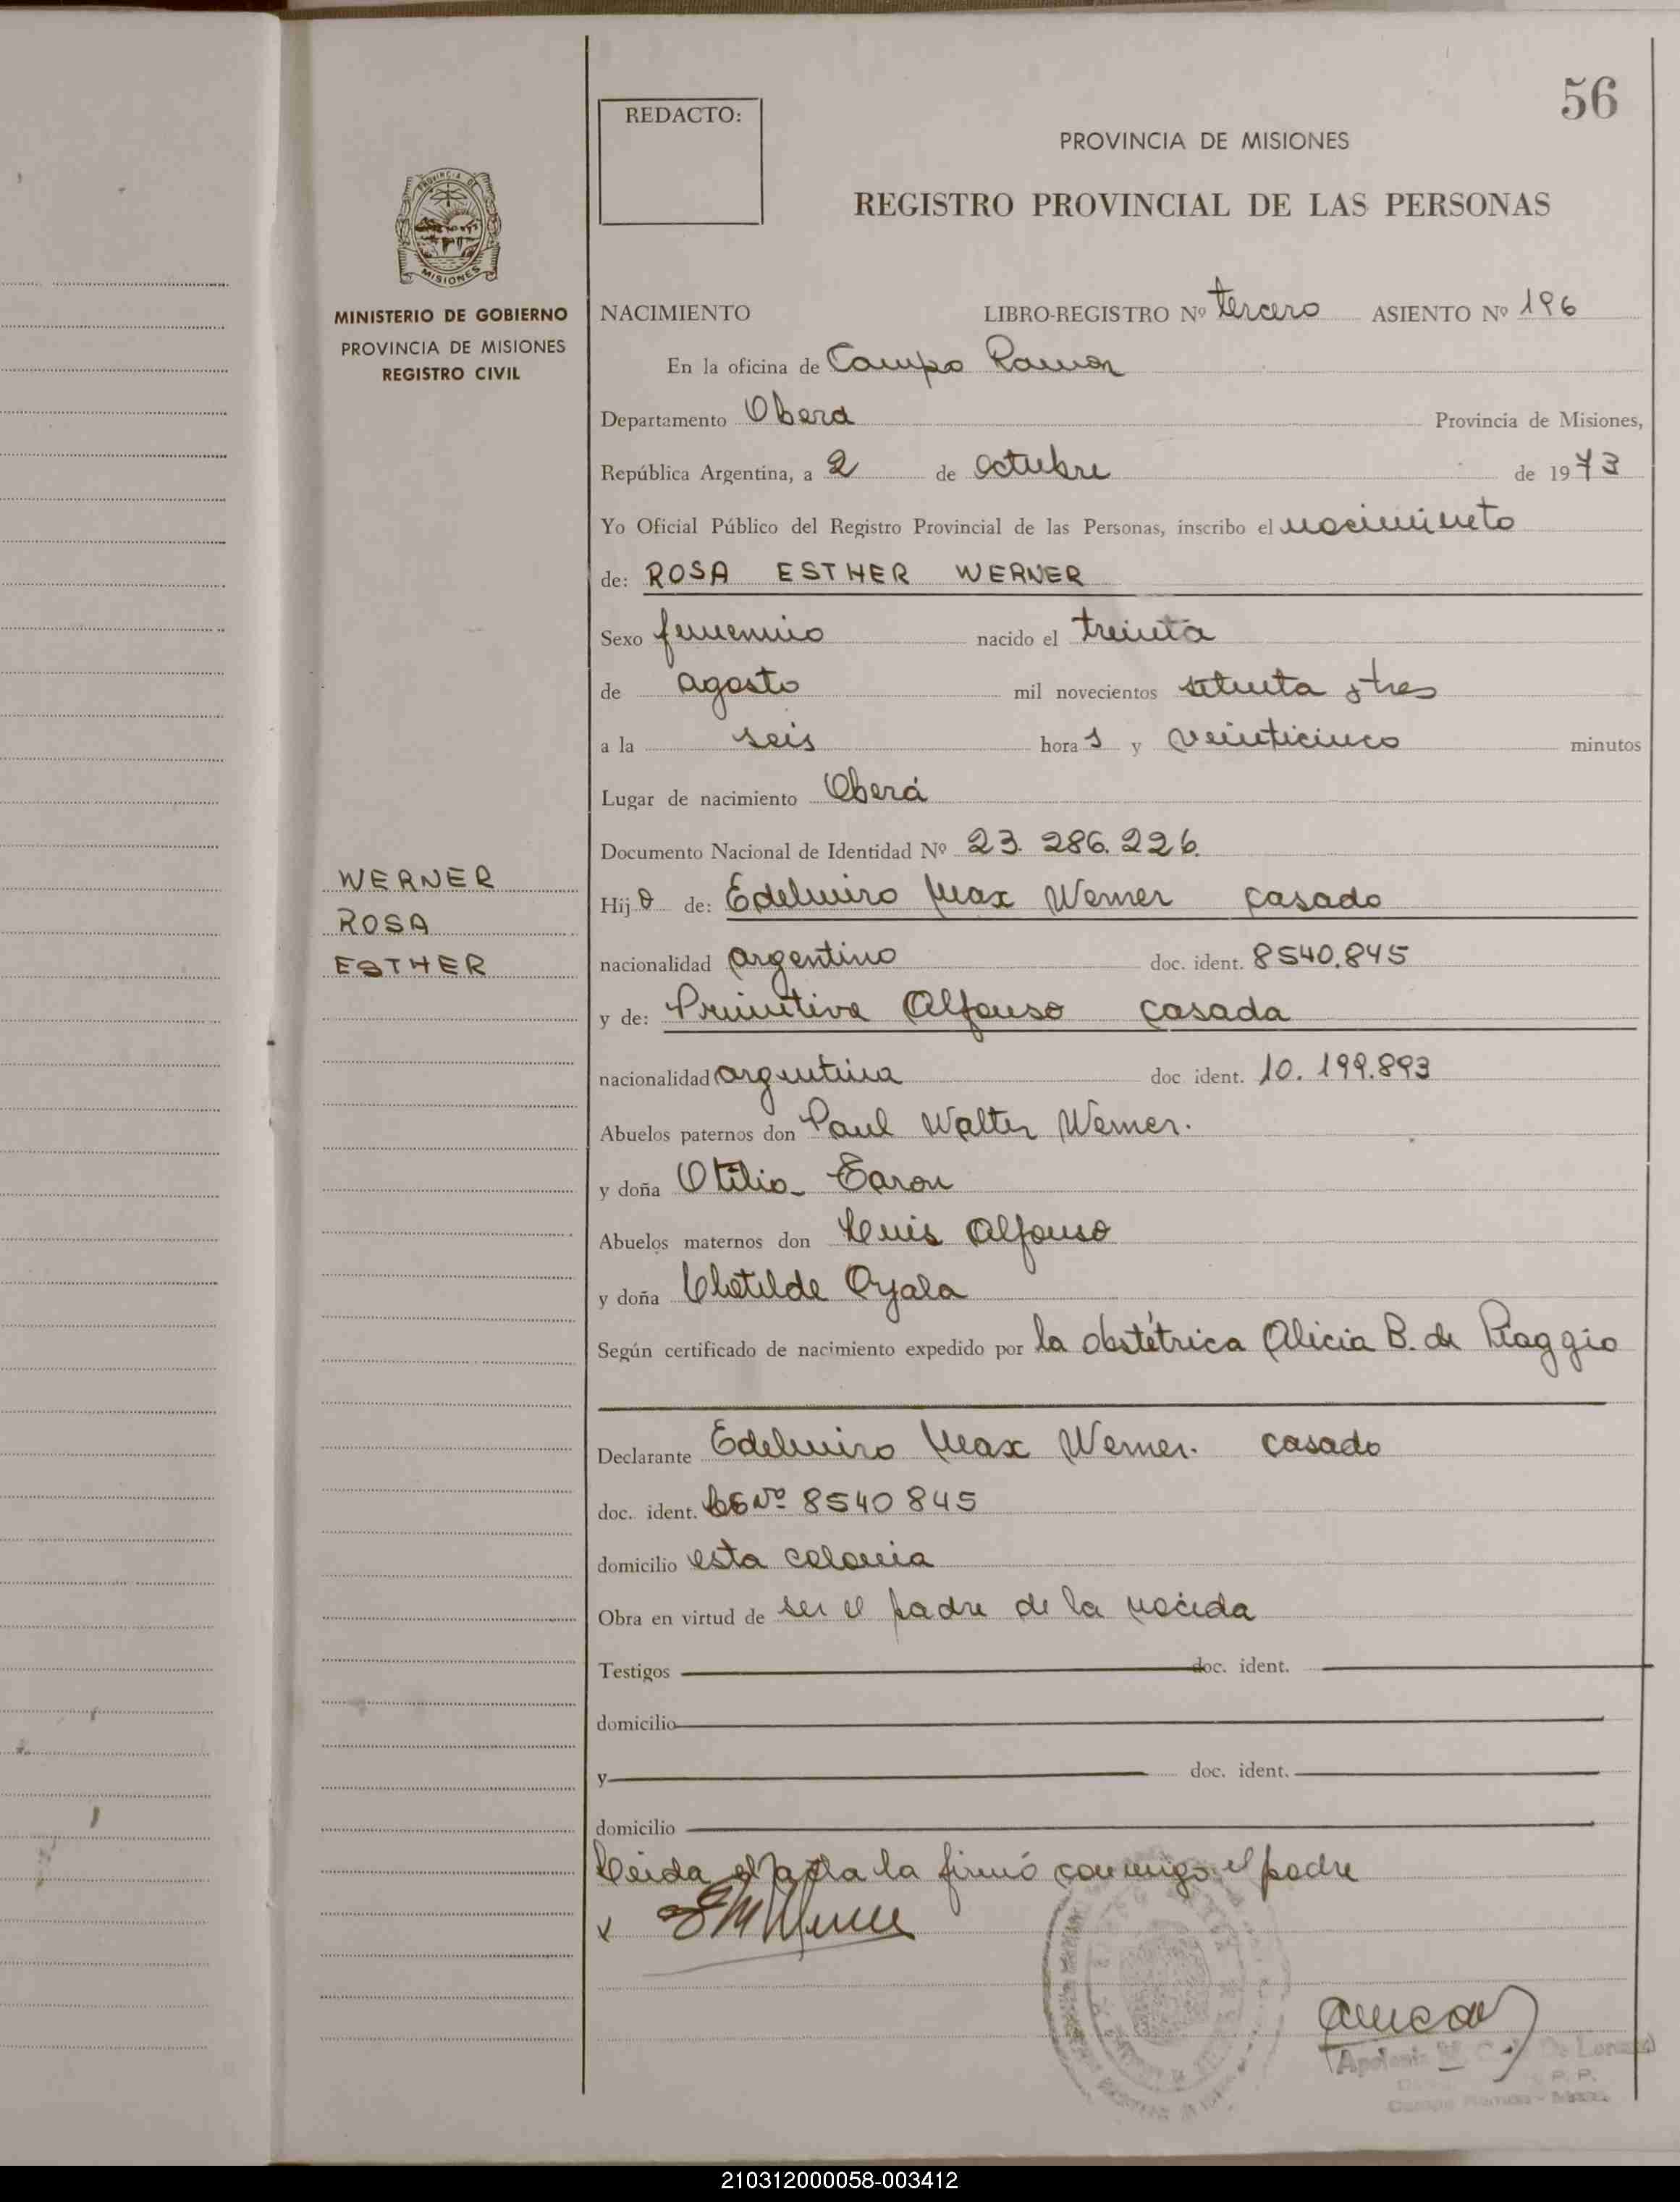 56
REDACTO:
PROVINCIA DE MISIONES
REGISTRO PROVINCIAL DE LAS PERSONAS
PROVINCIA DE
MISIONES
MINISTERIO DE GOBIERNO
PROVINCIA DE MISIONES
REGISTRO CIVIL
NACIMIENTO LIBRO-REGISTRO Nº tercero ASIENTO Nº 196
En la oficina de Campo Ramon
Departamento Obera Provincia de Misiones,
República Argentina, a 2 de octubre de 1973
Yo Oficial Público del Registro Provincial de las Personas, inscribo el
de: ROSA ESTHER WERNER
Sexo femenino nacido el treinta
de agosto mil novecientos setenta y tres
a la seis horas y veinticinco minutos
Lugar de nacimiento Oberá
Documento Nacional de Identidad Nº 23.286.226.
WERNER
ROSA
ESTHER
Hija de: Edelmiro Max Werner casado
nacionalidad argentino doc. ident. 8540.845
y de: Primitiva Alfonso casada
nacionalidad argentina doc ident. 10.199.893
Abuelos paternos don Paul Walter Werner.
y doña Otilia
Abuelos maternos don Luis Alfonso
y doña Clotilde Ayala
Según certificado de nacimiento expedido por la obstétrica Alicia B. de Piaggio
Declarante Edelmiro Max Werner. casado
doc. ident. LE Nº 8540845
domicilio esta colonia
Obra en virtud de ser el padre de la nacida
Testigos doc. ident.
domicilio
y doc. ident.
domicilio
Leida el acta la firmó conmigo el padre
x
210312000058-003412